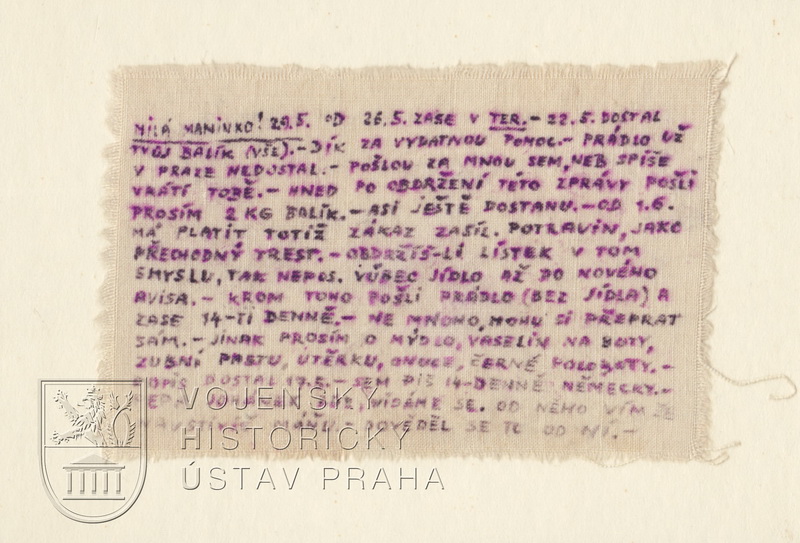 MILÁ MANINKO! 29.5. OD 26.5. ZASE V TER.- 22.5. DOSTAL
TVŮJ BALÍK (VŠE).- DÍK ZA VYDATNOU POMOC.- PRÁDLO UŽ
V PRAZE NEDOSTAL.- POŠLOU ZA MNOU SEM, NEB SPÍŠE
VRÁTÍ TOBĚ.- HNED PO OBDRŽENÍ TÉTO ZPRÁVY POŠLI
PROSÍM 2 KG BALÍK.- ASI JEŠTĚ DOSTANU.- OD 1.6.
MÁ PLATIT TOTIŽ ZÁKAZ ZASÍL. POTRAVIN, JAKO
PŘECHODNÝ TREST.- OBDRŽÍŠ-LI LÍSTEK V TOM
SMYSLU, TAK NEPOS. VŮBEC JÍDLO AŽ DO NOVÉHO
AVISA.- KROM TOHO POŠLI PRÁDLO (BEZ JÍDLA) A
ZASE 14-TI DENNĚ.- NE MNOHO, MOHU SI PŘEPRAT
SÁM.- JINAK PROSÍM O MÝDLO, VASELIN NA BOTY,
ZUBNÍ PASTU, UTĚRKU, ONUCE, ČERNÉ POLOBOTY.-
DOPIS DOSTAL 17.5.- SEM PIŠ 14-DENNĚ NĚMECKY.-
VÍDÁME SE. OD NĚHO VÍM ŽE
MÁŇU.- DOVĚDĚL SE TO OD NÍ.-
VOJENSKÝ
HISTORICKÝ
ÚSTAV PRAHA